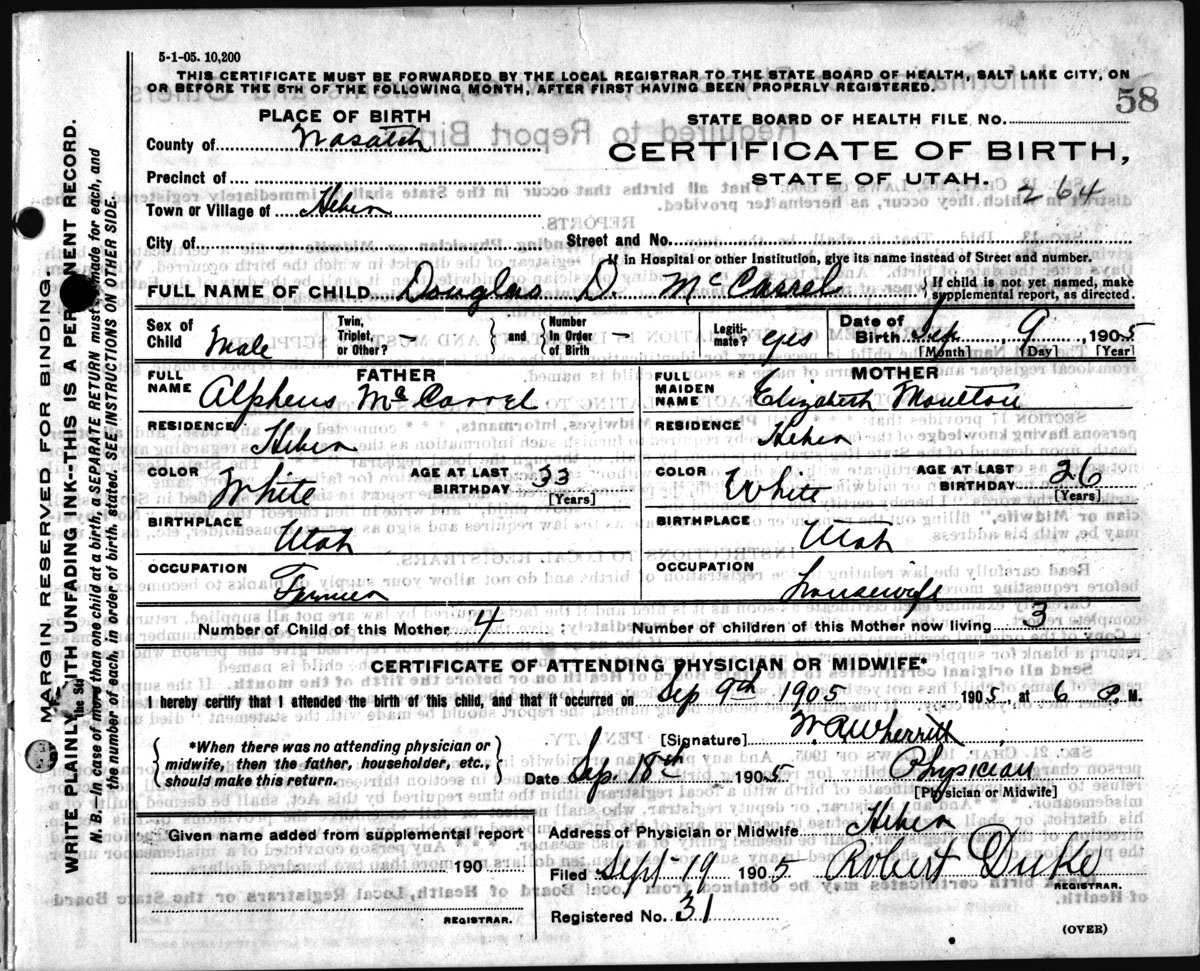 5-1-05. 10,200
THIS CERTIFICATE MUST BE FORWARDED BY THE LOCAL REGISTRAR TO THE STATE BOARD OF HEALTH, SALT LAKE CITY, ON
OR BEFORE THE 5TH OF THE FOLLOWING MONTH, AFTER FIRST HAVING BEEN PROPERLY REGISTERED.
58
PLACE OF BIRTH
STATE BOARD OF HEALTH FILE NO.
County of Wasatch
CERTIFICATE OF BIRTH,
Precinct of
STATE OF UTAH.
264
Town or Village of Heber
City of
Street and No.
If in Hospital or other Institution, give its name instead of Street and number.
FULL NAME OF CHILD Douglas D. McCarrel
{If child is not yet named, make
supplemental report, as directed.
Sex of Child Male
Twin, Triplet, or Other? - } and { Number In Order of Birth -
Legiti- mate? yes
Date of Birth Sep 9, 1905
[Month] [Day] [Year]
FATHER
FULL NAME Alpheus McCarrel
RESIDENCE Heber
COLOR White
AGE AT LAST BIRTHDAY 33
[Years]
BIRTHPLACE Utah
OCCUPATION Farmer
MOTHER
FULL MAIDEN NAME Elizabeth Moulton
RESIDENCE Heber
COLOR White
AGE AT LAST BIRTHDAY 26
[Years]
BIRTHPLACE Utah
OCCUPATION housewife
Number of Child of this Mother 4 ; Number of children of this Mother now living 3
CERTIFICATE OF ATTENDING PHYSICIAN OR MIDWIFE*
I hereby certify that I attended the birth of this child, and that it occurred on Sep 9th 1905 1905, at 6 P. M.
{*When there was no attending physician or
midwife, then the father, householder, etc.,
should make this return.}
[Signature] W. R. Wherritt
Date Sep. 18th 1905 Physician
[Physician or Midwife]
Given name added from supplemental report
190
REGISTRAR.
Address of Physician or Midwife Heber
Filed Sept-19 1905 Robert Duke
REGISTRAR.
Registered No. 31
(OVER)
MARGIN RESERVED FOR BINDING.
WRITE PLAINLY WITH UNFADING INK--THIS IS A PERMANENT RECORD.
N. B.--In case of more than one child at birth, a SEPARATE RETURN must be made for each, and
the number of each, in order of birth, stated. SEE INSTRUCTIONS ON OTHER SIDE.